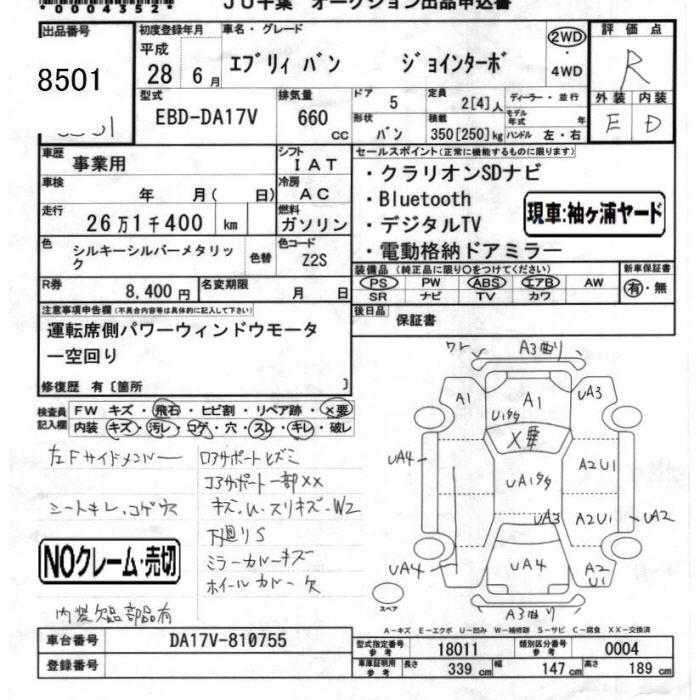 *00043524*
JU千葉 オークション出品申込書
出品番号
8501
初度登録年月
平成
28年 6月
車名・グレード
エブリィ バン ジョインターボ
2WD
・
4WD
評価点
R
外装 内装
E D
型式
EBD-DA17V
排気量
660
CC
ドア
5
定員
2[4]人
ディーラー・並行
形状
バン
積載
350[250]kg
モデル年式 年
ハンドル 左・右
車歴
事業用
シフト
IAT
車検
年 月( 日)
冷房
AC
走行
26万1千400 km
燃料
ガソリン
色
シルキーシルバーメタリック
色替
色コード
Z2S
R券
8,400円
名変期限
月 日
セールスポイント(正常に機能するものに限ります)
・クラリオンSDナビ
・Bluetooth
・デジタルTV
・電動格納ドアミラー
現車:袖ヶ浦ヤード
装備品(純正品に限り○をつけてください)
PS PW ABS エアB AW
SR ナビ TV カワ
新車保証書
有・無
後日品
保証書
注意事項申告欄(不具合内容等は具体的に記入して下さい)
運転席側パワーウィンドウモータ
ー空回り
修復歴 有〔箇所 〕
検査員
記入欄
FW キズ・飛石・ヒビ割・リペア跡・×要
内装 キズ・汚レ・コゲ・穴・スレ・キレ・破レ
左Fサイドメンバー
シートキレ、コゲ穴
NOクレーム・売切
内装欠品部品有
コアサポートヒズミ
コアサポート一部XX
キズ、U、スリキズ・W2
下廻りS
ミラーカバーキズ
ホイールカバー欠
ワレ
A3曲り
A1
A1
U1多々
UA3
X要
UA4
U1多々
A2U1
UA3
A2U1
UA2
UA4
UA4
A2
U1
A3曲り
スペア
A-キズ E-エクボ U-凹み W-補修跡 S-サビ C-腐食 XX-交換済
車台番号
DA17V-810755
登録番号
型式指定番号
参考
18011
類別区分番号
参考
0004
車庫証明用
参考
長さ
339 cm
幅
147 cm
高さ
189 cm